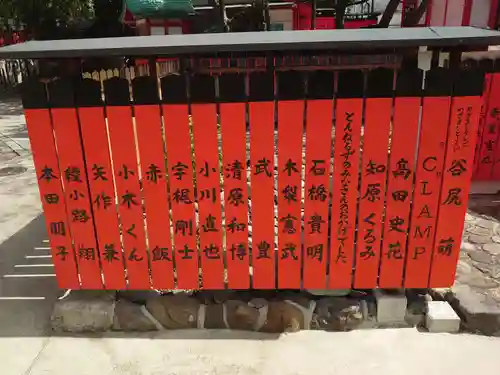 谷尻萌
CLAMP
髙田史花
知原くるみ
とんねるずのみなさんのおかげでした
石橋貴明
木梨憲武
武豊
清原和博
小川直也
宇梶剛士
赤飯
小木くん
矢作兼
綾小路翔
本田明子